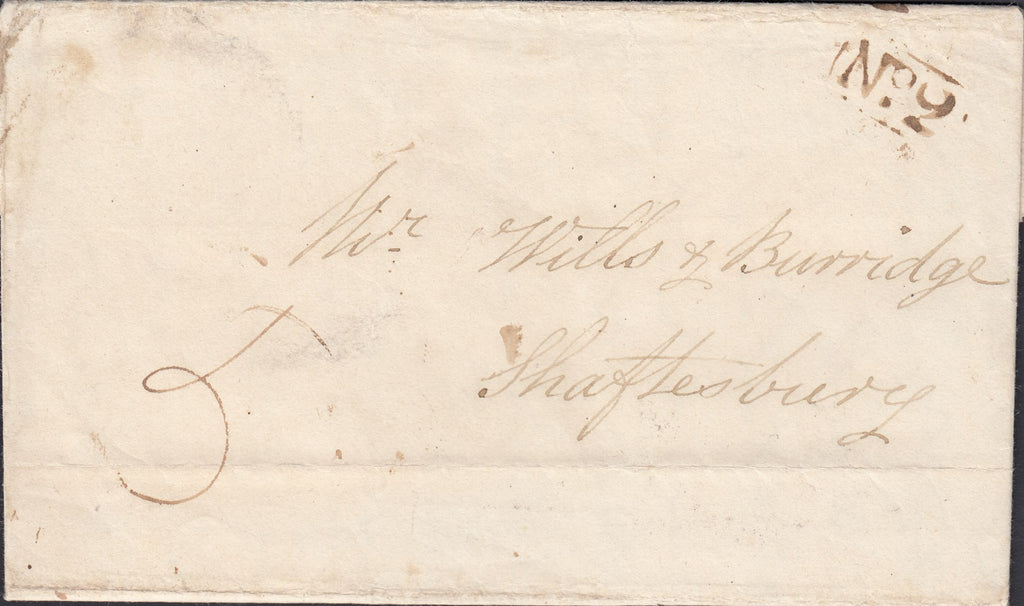 No. 2
Mr. Wills & Burridge
Shaftesbury
5